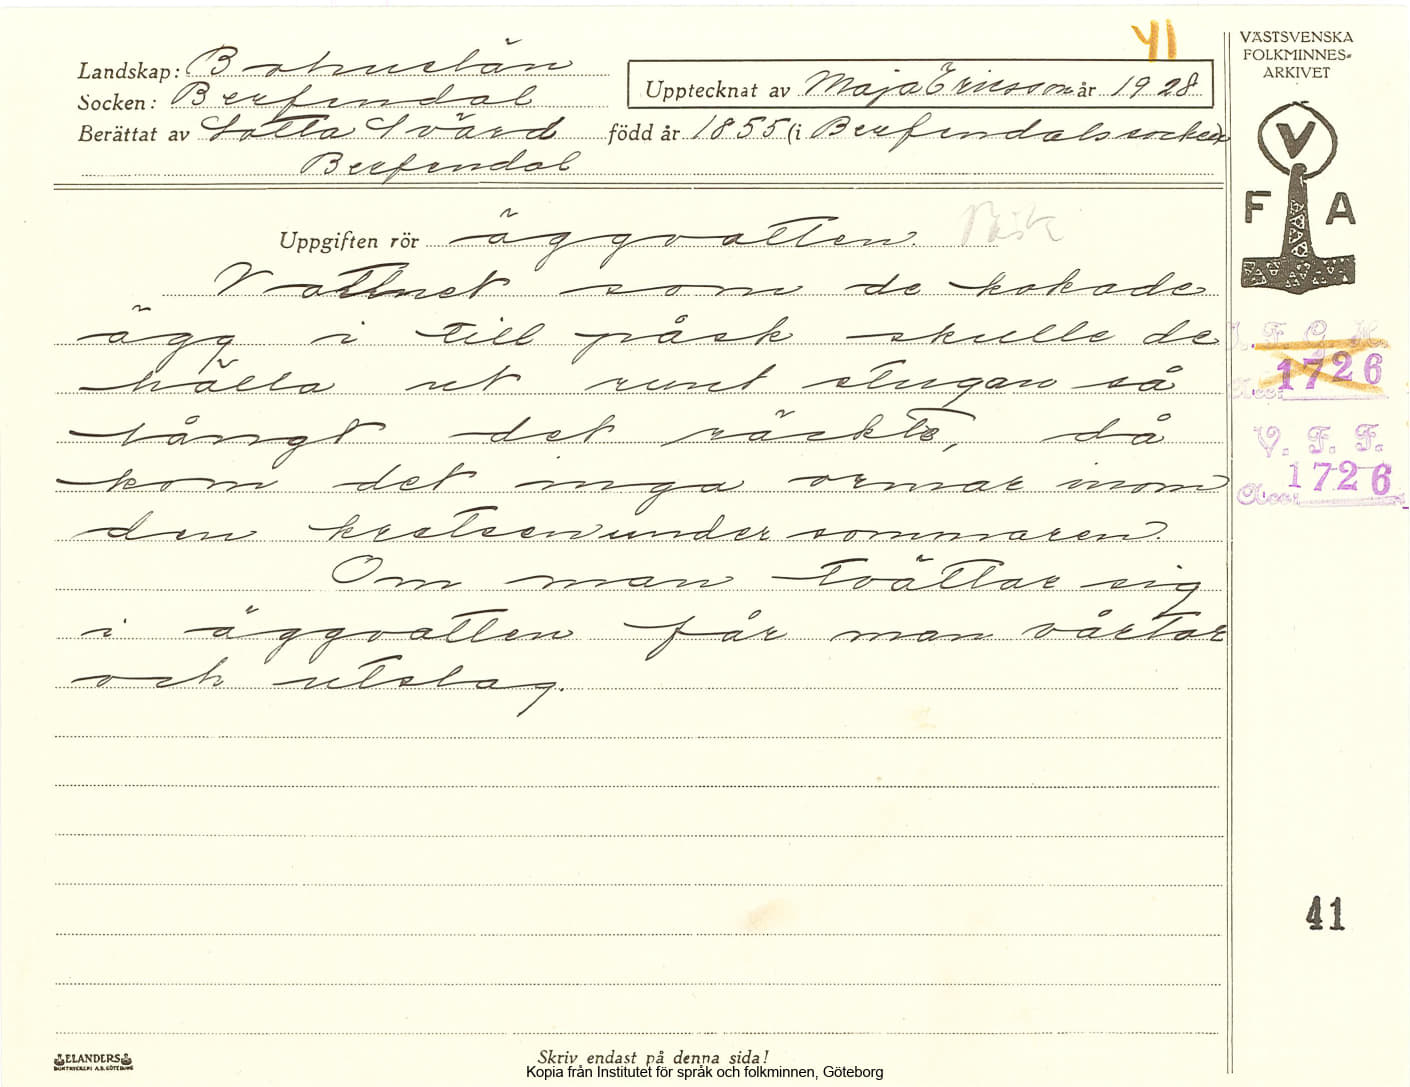 41
Landskap: Bohuslän
Socken: Berfendal
Upptecknat av Maja Ericsson år 1928
Berättat av Lotta Svärd född år 1855 (i Berfendals socken
Berfendal
Uppgiften rör äggvatten. Påsk
Vattnet som de kokade
ägg i till påsk skulle de
hälla ut runt stugan så
långt det räckte, då
kom det inga ormar inom
den kretsen under sommaren.
Om man tvättar sig
i äggvatten får man vårtor
och utslag.
VÄSTSVENSKA
FOLKMINNES-
ARKIVET
V
F A
I. F. G. H.
Acc: 1726
V. F. F.
Acc: 1726
41
ELANDERS
BOKTRYCKERI A.B. GÖTEBORG
Skriv endast på denna sida!
Kopia från Institutet för språk och folkminnen, Göteborg